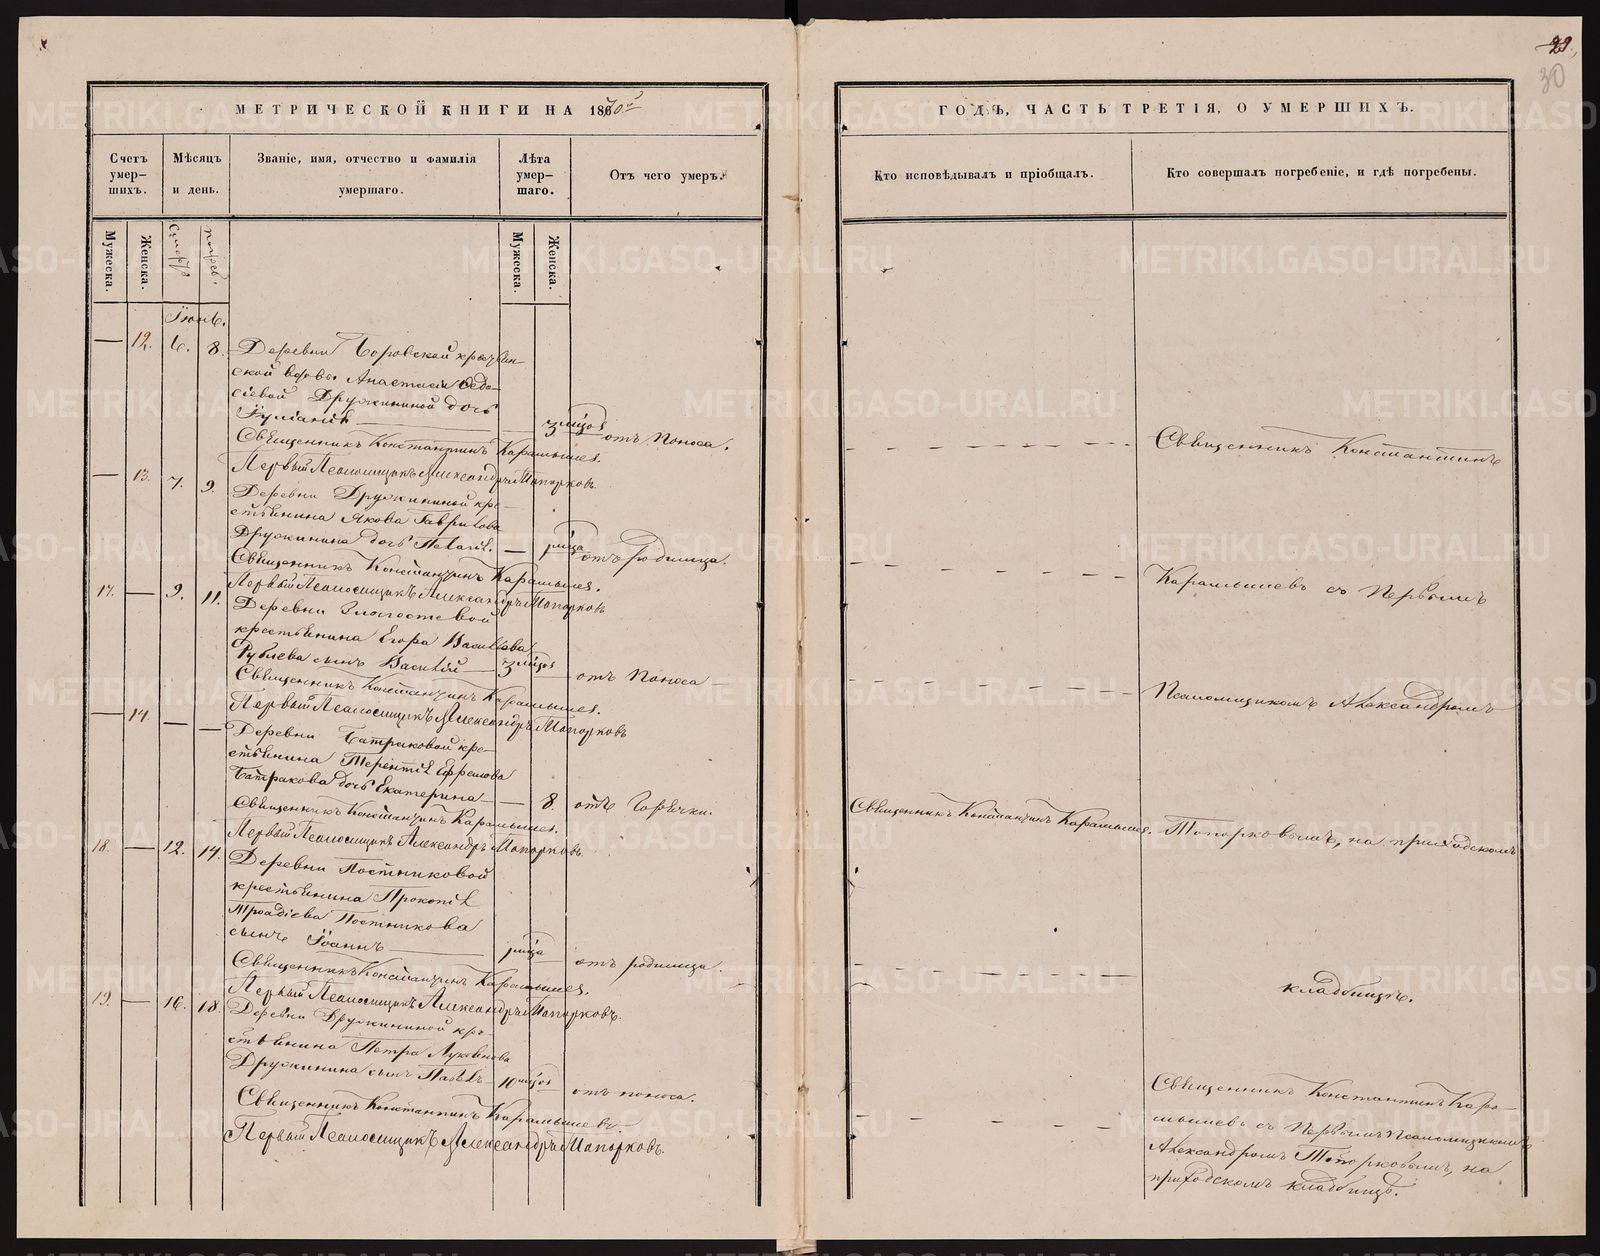 МЕТРИЧЕСКОЙ КНИГИ НА 1870
Счетъ умер-
шихъ.
Мѣсяцъ
и день.
Званіе, имя, отчество и фамилія
умершаго.
Лѣта
умер-
шаго.
Отъ чего умеръ.
Мужеска.
Женска.
Мужеска.
Женска.
Іюнь.
— 12. 6. 8. Деревни Боровской крестьян-
ской вдовы Анастасіи Ѳедо-
сіевой Дружининой дочь
Іуліанія
отъ поноса.
Священникъ Константинъ Карамышев.
Первый Псаломщикъ Александръ Топорковъ.
— 13. 7. 9.
Деревни Дружининой кре-
стьянина Якова Гаврилова
Дружинина дочь Пелагія. —
отъ родимца.
Священникъ Константинъ Карамышев.
Первый Псаломщикъ Александръ Топорковъ
17. — 9. 11.
Деревни
крестьянина Егора Васильева
Рублева сынъ Василій
отъ поноса
Священникъ Константинъ Карамышев.
Первый Псаломщикъ Александръ Топорковъ
— 14. — —
Деревни Батраковой кре-
стьянина Терентія Ефремова
Батракова дочь Екатерина — 8. отъ горячки.
Священникъ Константинъ Карамышев.
Первый Псаломщикъ Александръ Топорковъ.
18. — 12. 14.
Деревни Постниковой
крестьянина Прокопія
Постникова
сынъ Іоаннъ
отъ родимца.
Священникъ Константинъ Карамышев.
Первый Псаломщикъ Александръ Топорковъ.
19. — 16. 18.
Деревни Дружининой кре-
стьянина Петра Лукьянова
Дружинина сынъ Павелъ
отъ поноса.
Священникъ Константинъ Карамышевъ.
Первый Псаломщикъ Александръ Топорковъ.
29.
30
ГОДЪ, ЧАСТЬ ТРЕТІЯ, О УМЕРШИХЪ.
Кто исповѣдывалъ и пріобщалъ.
Кто совершалъ погребеніе, и гдѣ погребены.
Священникъ Константинъ
Карамышевъ съ Первымъ
Псаломщикомъ Александромъ
Священникъ Константинъ Карамышев.
Топорковымъ, на приходскомъ
кладбищѣ.
Священникъ Константинъ Кара-
мышевъ съ Первымъ Псаломщикомъ
Александромъ Топорковымъ, на
приходскомъ кладбищѣ.
METRIKI.GASO-URAL.RU